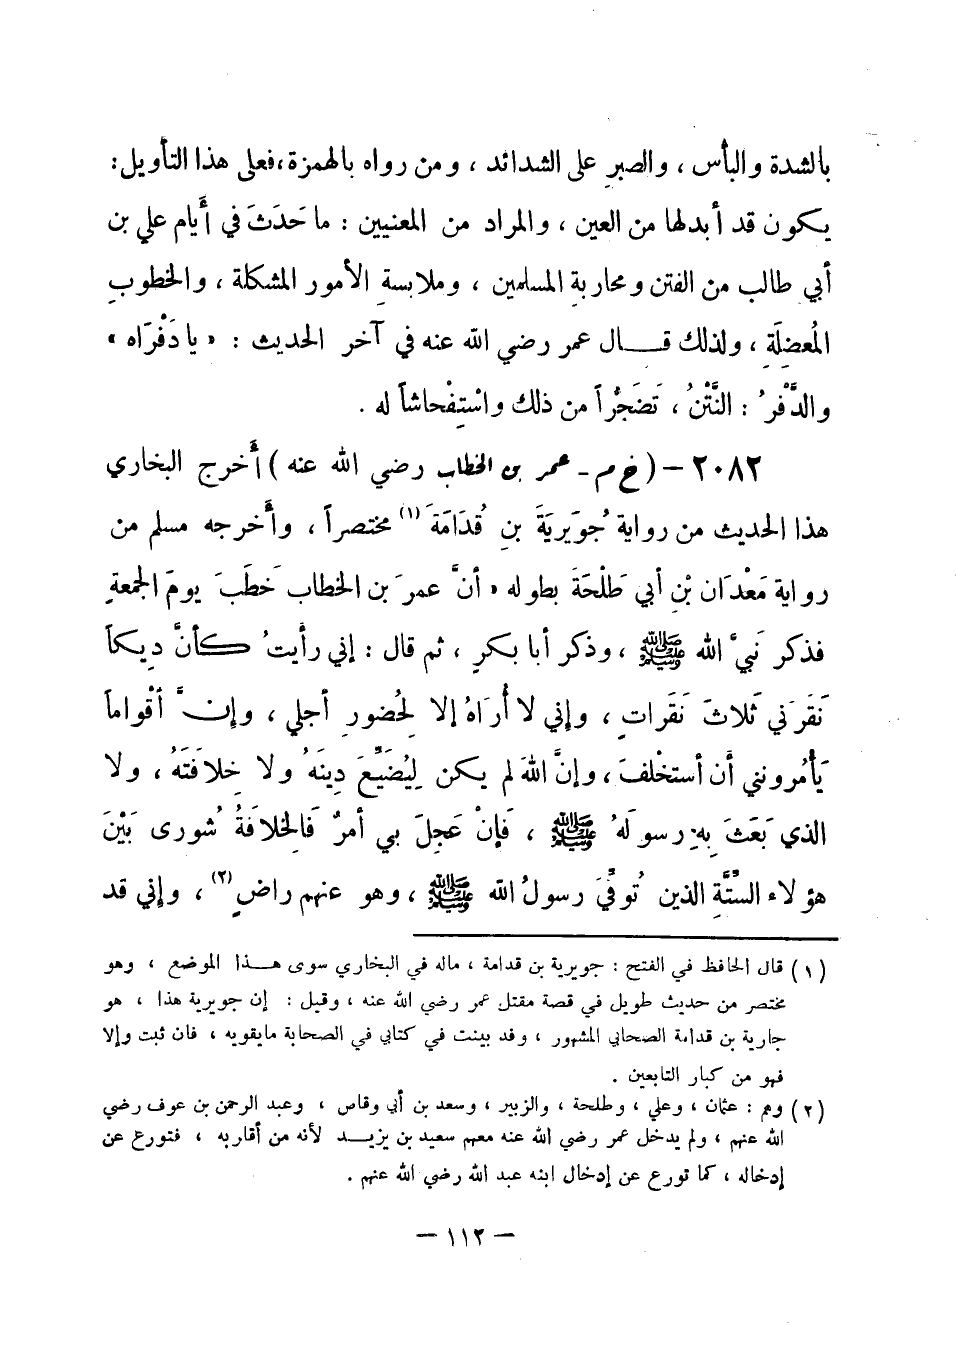 بالشدة والبأس ، والصبرِ على الشدائد ، ومن رواه بالهمزة ، فعلى هذا التأويل :
يكون قد أبدلها من العين ، والمراد من المعنيين : ما حَدَثَ في أَيام علي بن
أبي طالب من الفتن ومحاربةِ المسلمين ، وملابسةِ الأمور المشكلة ، والخطوبِ
المُعضِلَةِ ، ولذلك قــال عمر رضي الله عنه في آخر الحديث : « يا دَفْرَاه »
والدَّفْرُ : النَّتْنُ ، تَضَجُّراً من ذلك واسْتِفْحاشاً له .
٢٠٨٢ – ( خ م - عمر بن الخطاب رضي الله عنه ) أَخرج البخاري
هذا الحديث من رواية جُوَيرِيَةَ بنِ قُدَامَةَ (١) مختصراً ، وأَخرجه مسلم من
رواية مَعْدَان بْنِ أبي طَلْحَةَ بطوله « أنَّ عمرَ بن الخطاب خَطَبَ يومَ الجمعةِ
فذكر نَبيَّ الله ﷺ ، وذكر أبا بكرٍ ، ثم قال : إني رأَيتُ كأنَّ دِيكاً
نَقَرَني ثلاثَ نَقَراتٍ ، وإني لا أُرَاهُ إلا لِحُضورِ أجلي ، وإنَّ أقْواماً
يَأْمُرونني أن أستخْلفَ ، وإنَّ اللهَ لم يكن لِيُضَيِّعَ دِينَهُ ولا خِلافَتَهُ ، ولا
الذي بَعَثَ بِهِ رسولَهُ ﷺ ، فَإنْ عَجِلَ بي أمرٌ فَالخِلافَةُ شُورى بَيْنَ
هؤلاء السِّتَّةِ الذين تُوفِّيَ رسولُ الله ﷺ ، وهو عنهم راضٍ (٢) ، وإني قد
(١) قال الحافظ في الفتح : جويرية بن قدامة ، ماله في البخاري سوى هـذا الموضع ، وهو
مختصر من حديث طويل في قصة مقتل عمر رضي الله عنه ، وقيل : إن جويرية هذا ، هو
جارية بن قدامة الصحابي المشهور ، وقد بينت في كتابي في الصحابة مايقويه ، فان ثبت وإلا
فهو من كبار التابعين .
(٢) وهم : عثمان ، وعلي ، وطلحة ، والزبير ، وسعد بن أبي وقاص ، وعبد الرحمن بن عوف رضي
الله عنهم ، ولم يدخل عمر رضي الله عنه معهم سعيد بن يزيـد لأنه من أقاربه ، فتورع عن
إدخاله ، كما تورع عن إدخال ابنه عبد الله رضي الله عنهم .
– ١١٢ –